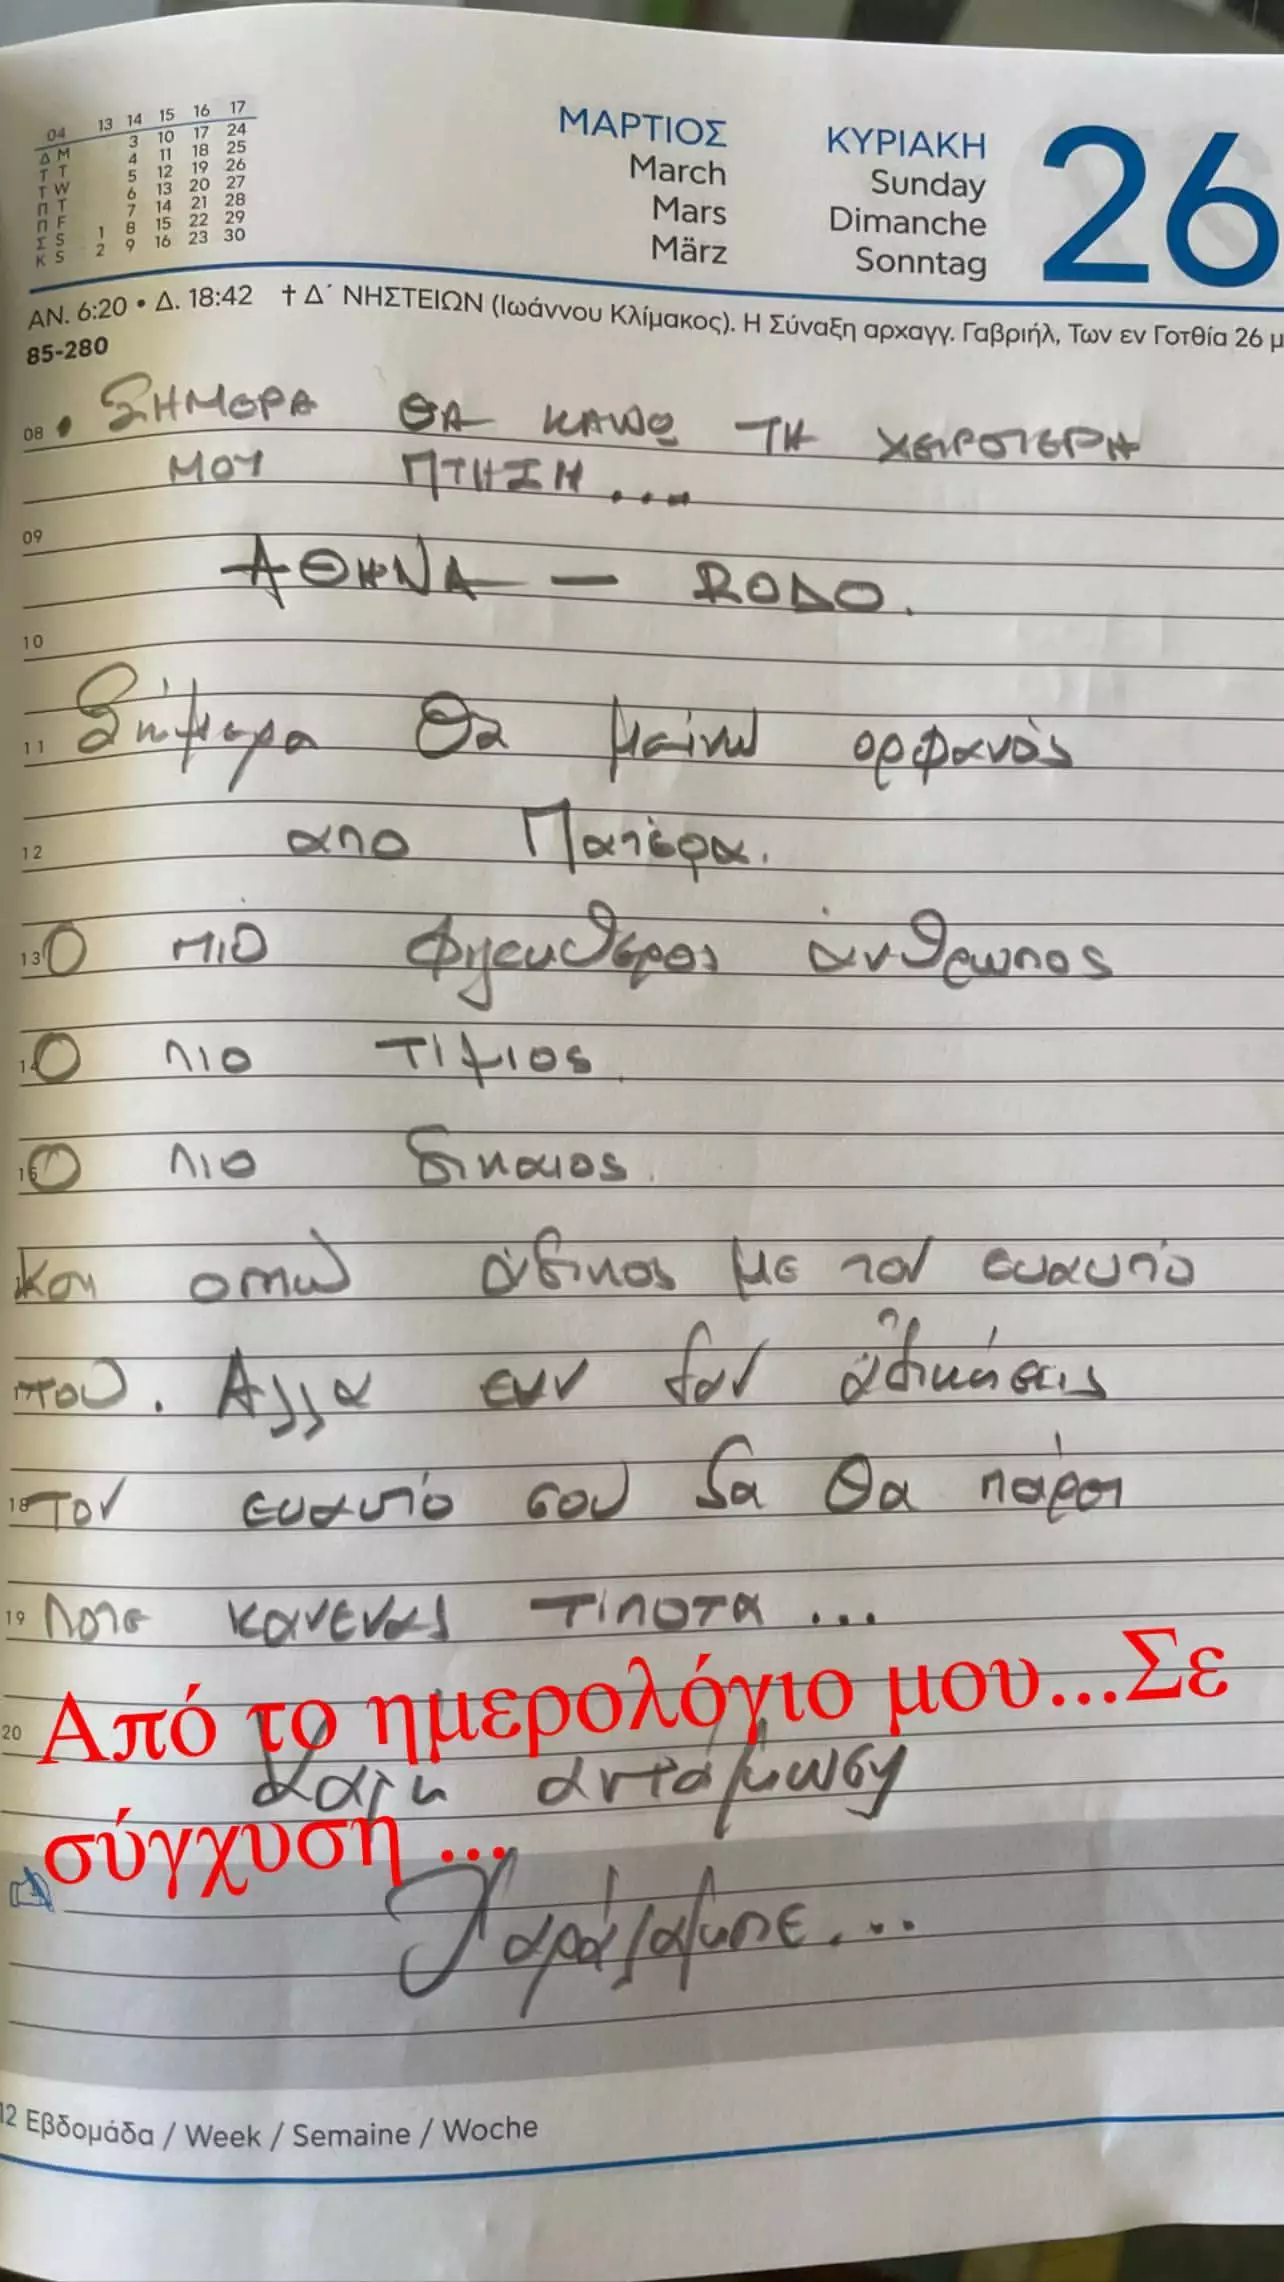 04 13 14 15 16 17
Δ M 3 10 17 24
Τ T 4 11 18 25
Τ W 5 12 19 26
Π T 6 13 20 27
Π F 7 14 21 28
Σ S 1 8 15 22 29
Κ S 2 9 16 23 30
ΜΑΡΤΙΟΣ
March
Mars
März
ΚΥΡΙΑΚΗ
Sunday
Dimanche
Sonntag
26
ΑΝ. 6:20 • Δ. 18:42 † Δ΄ ΝΗΣΤΕΙΩΝ (Ιωάννου Κλίμακος). Η Σύναξη αρχαγγ. Γαβριήλ, Των εν Γοτθία 26 μ
85-280
08 • ΣΗΜΕΡΑ ΘΑ ΚΑΝΩ ΤΗ ΧΕΙΡΟΤΕΡΗ
ΜΟΥ ΠΤΗΣΗ...
09
ΑΘΗΝΑ — RΟΔΟ.
10
11 Σήμερα θα μείνω ορφανός
12 απο Πατέρα.
13 Ο πιο άνθρωπος
14 Ο πιο τίμιος.
15 Ο πιο δικαιος.
Και άδικος με τον ευαυτό
του. Αλλα εαν δαν αδικήσεις
18 Τον ευαυτό σου δα θα πάρει
19 Ποτε κανενας τίποτα...
Από το ημερολόγιο μου...Σε
20
Καλη αντάμωση
σύγχυση ...
Χαράλαμπε...
12 Εβδομάδα / Week / Semaine / Woche